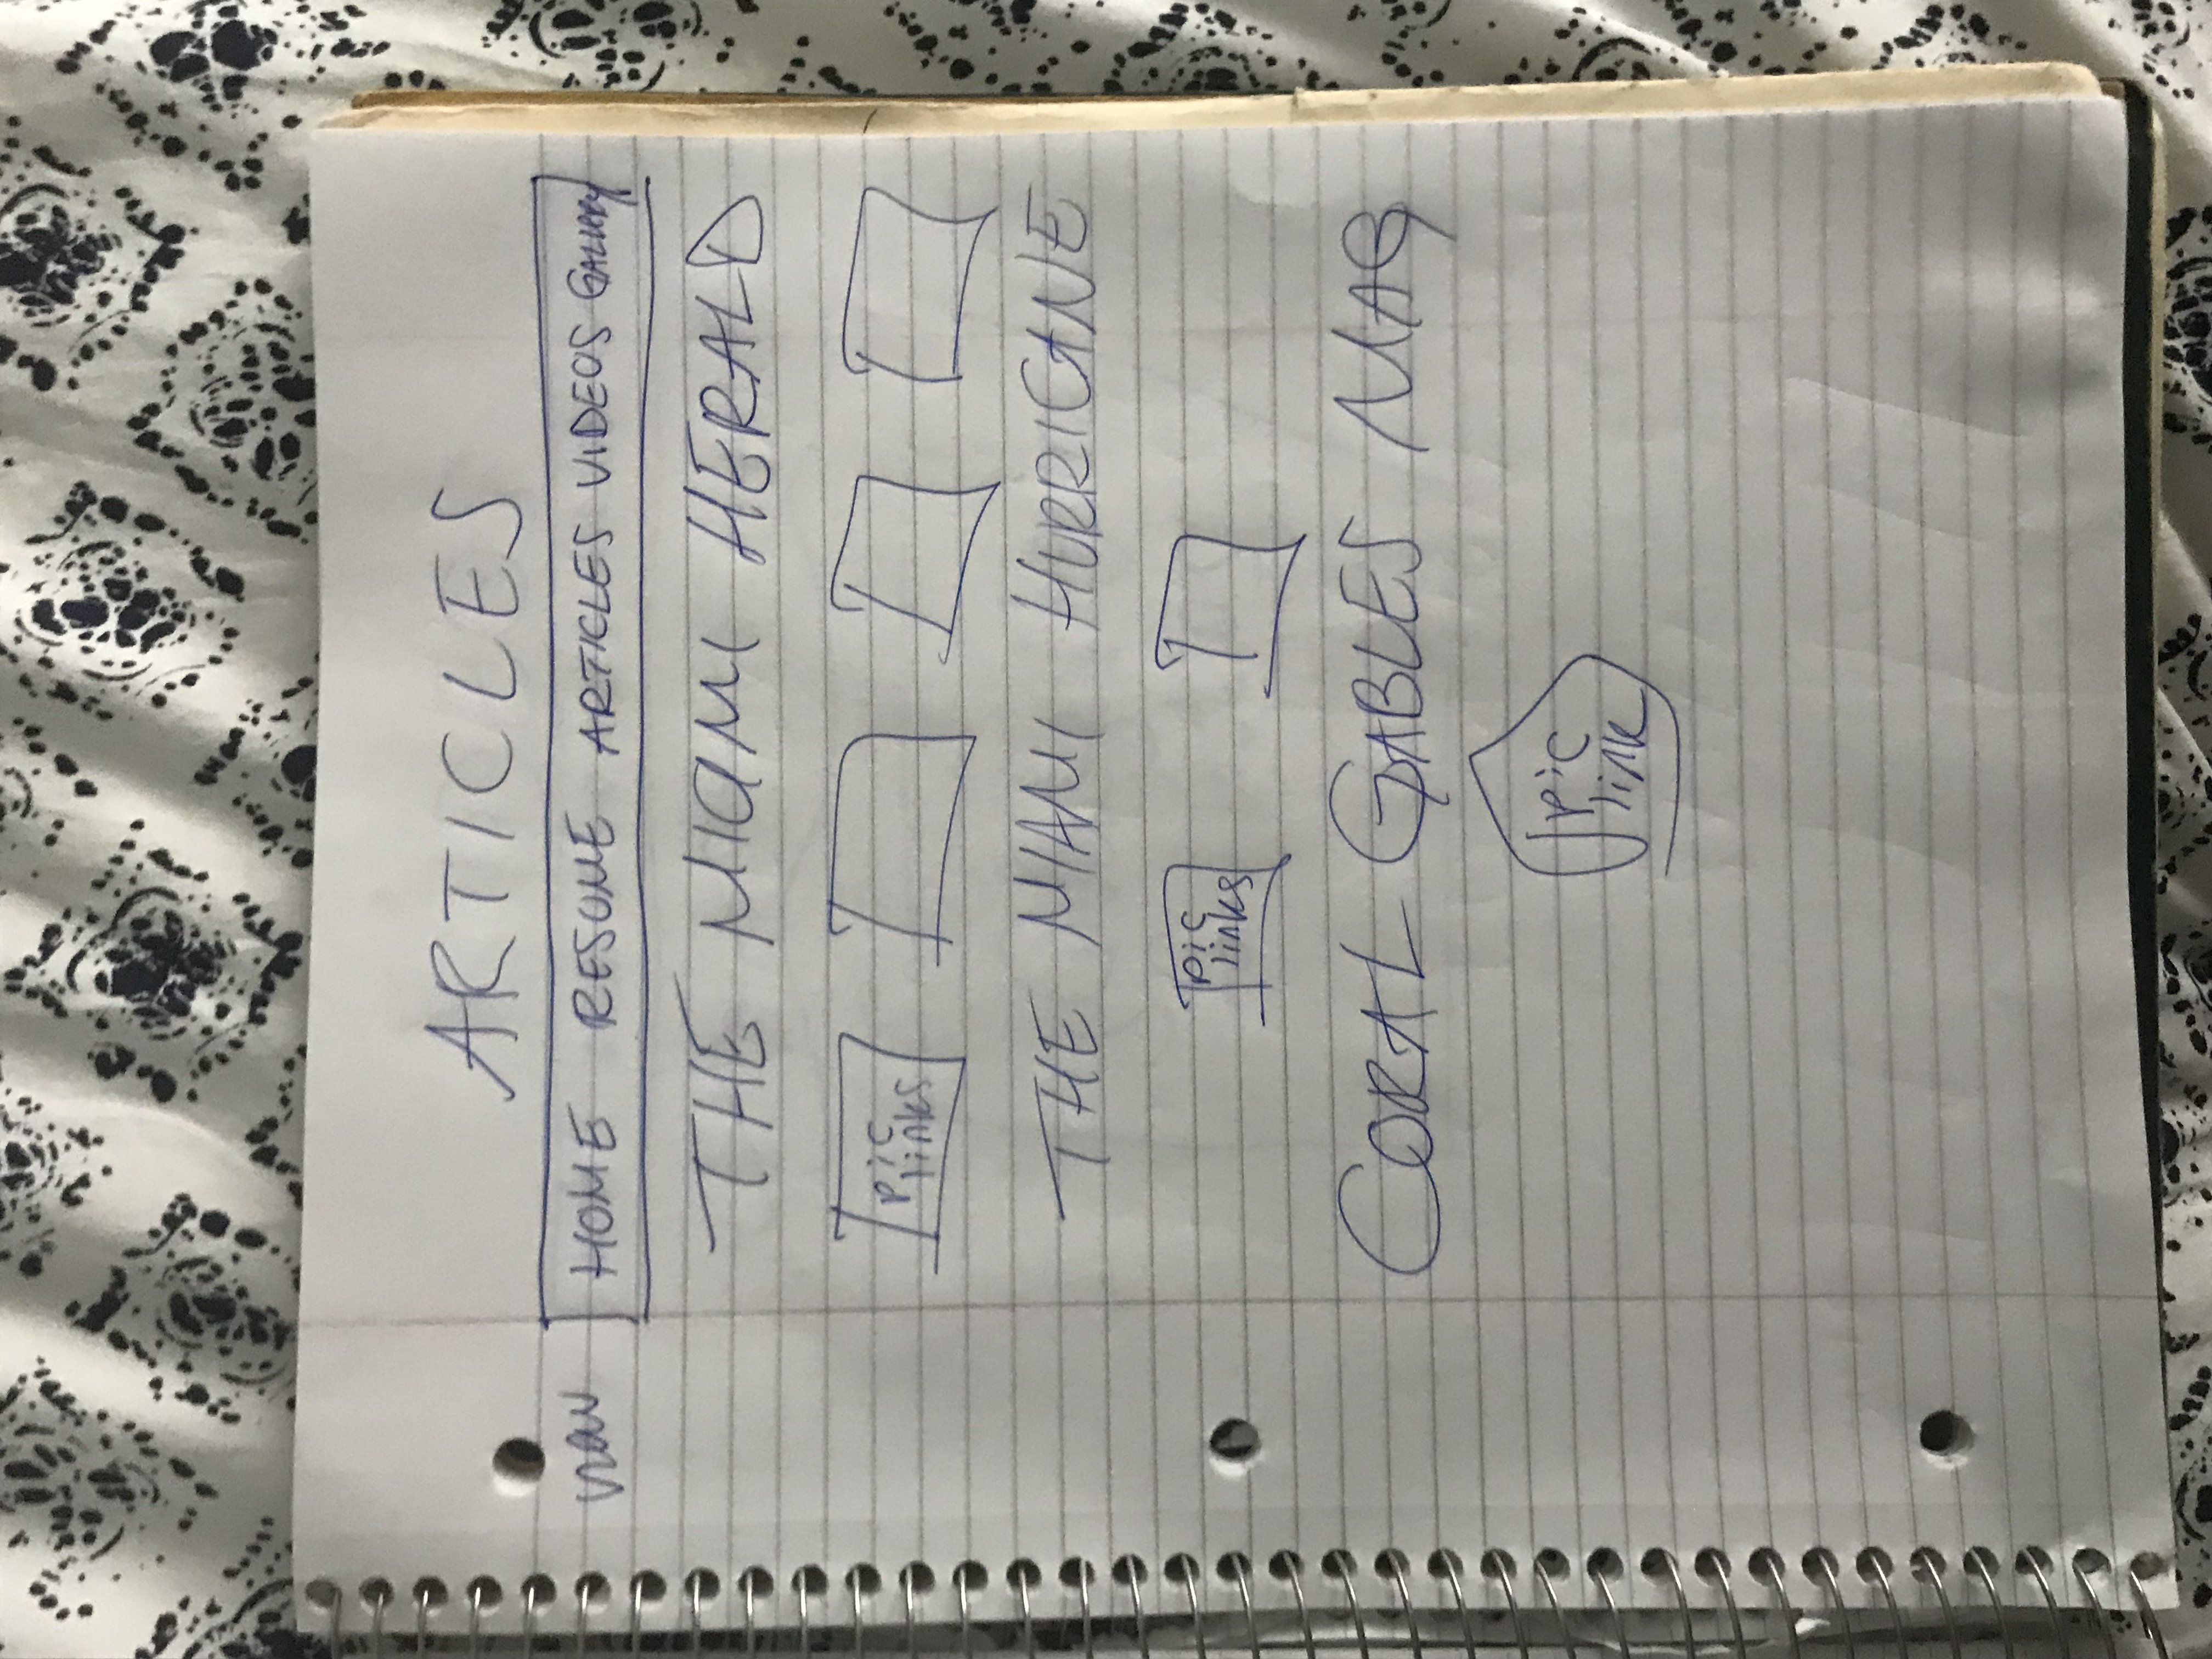 ARTICLES
nav HOME RESUME ARTICLES VIDEOS GALLERY
THE MIAMI HERALD
pic
links
THE MIAMI HURRICANE
pic
links
CORAL GABLES MAG
pic
link